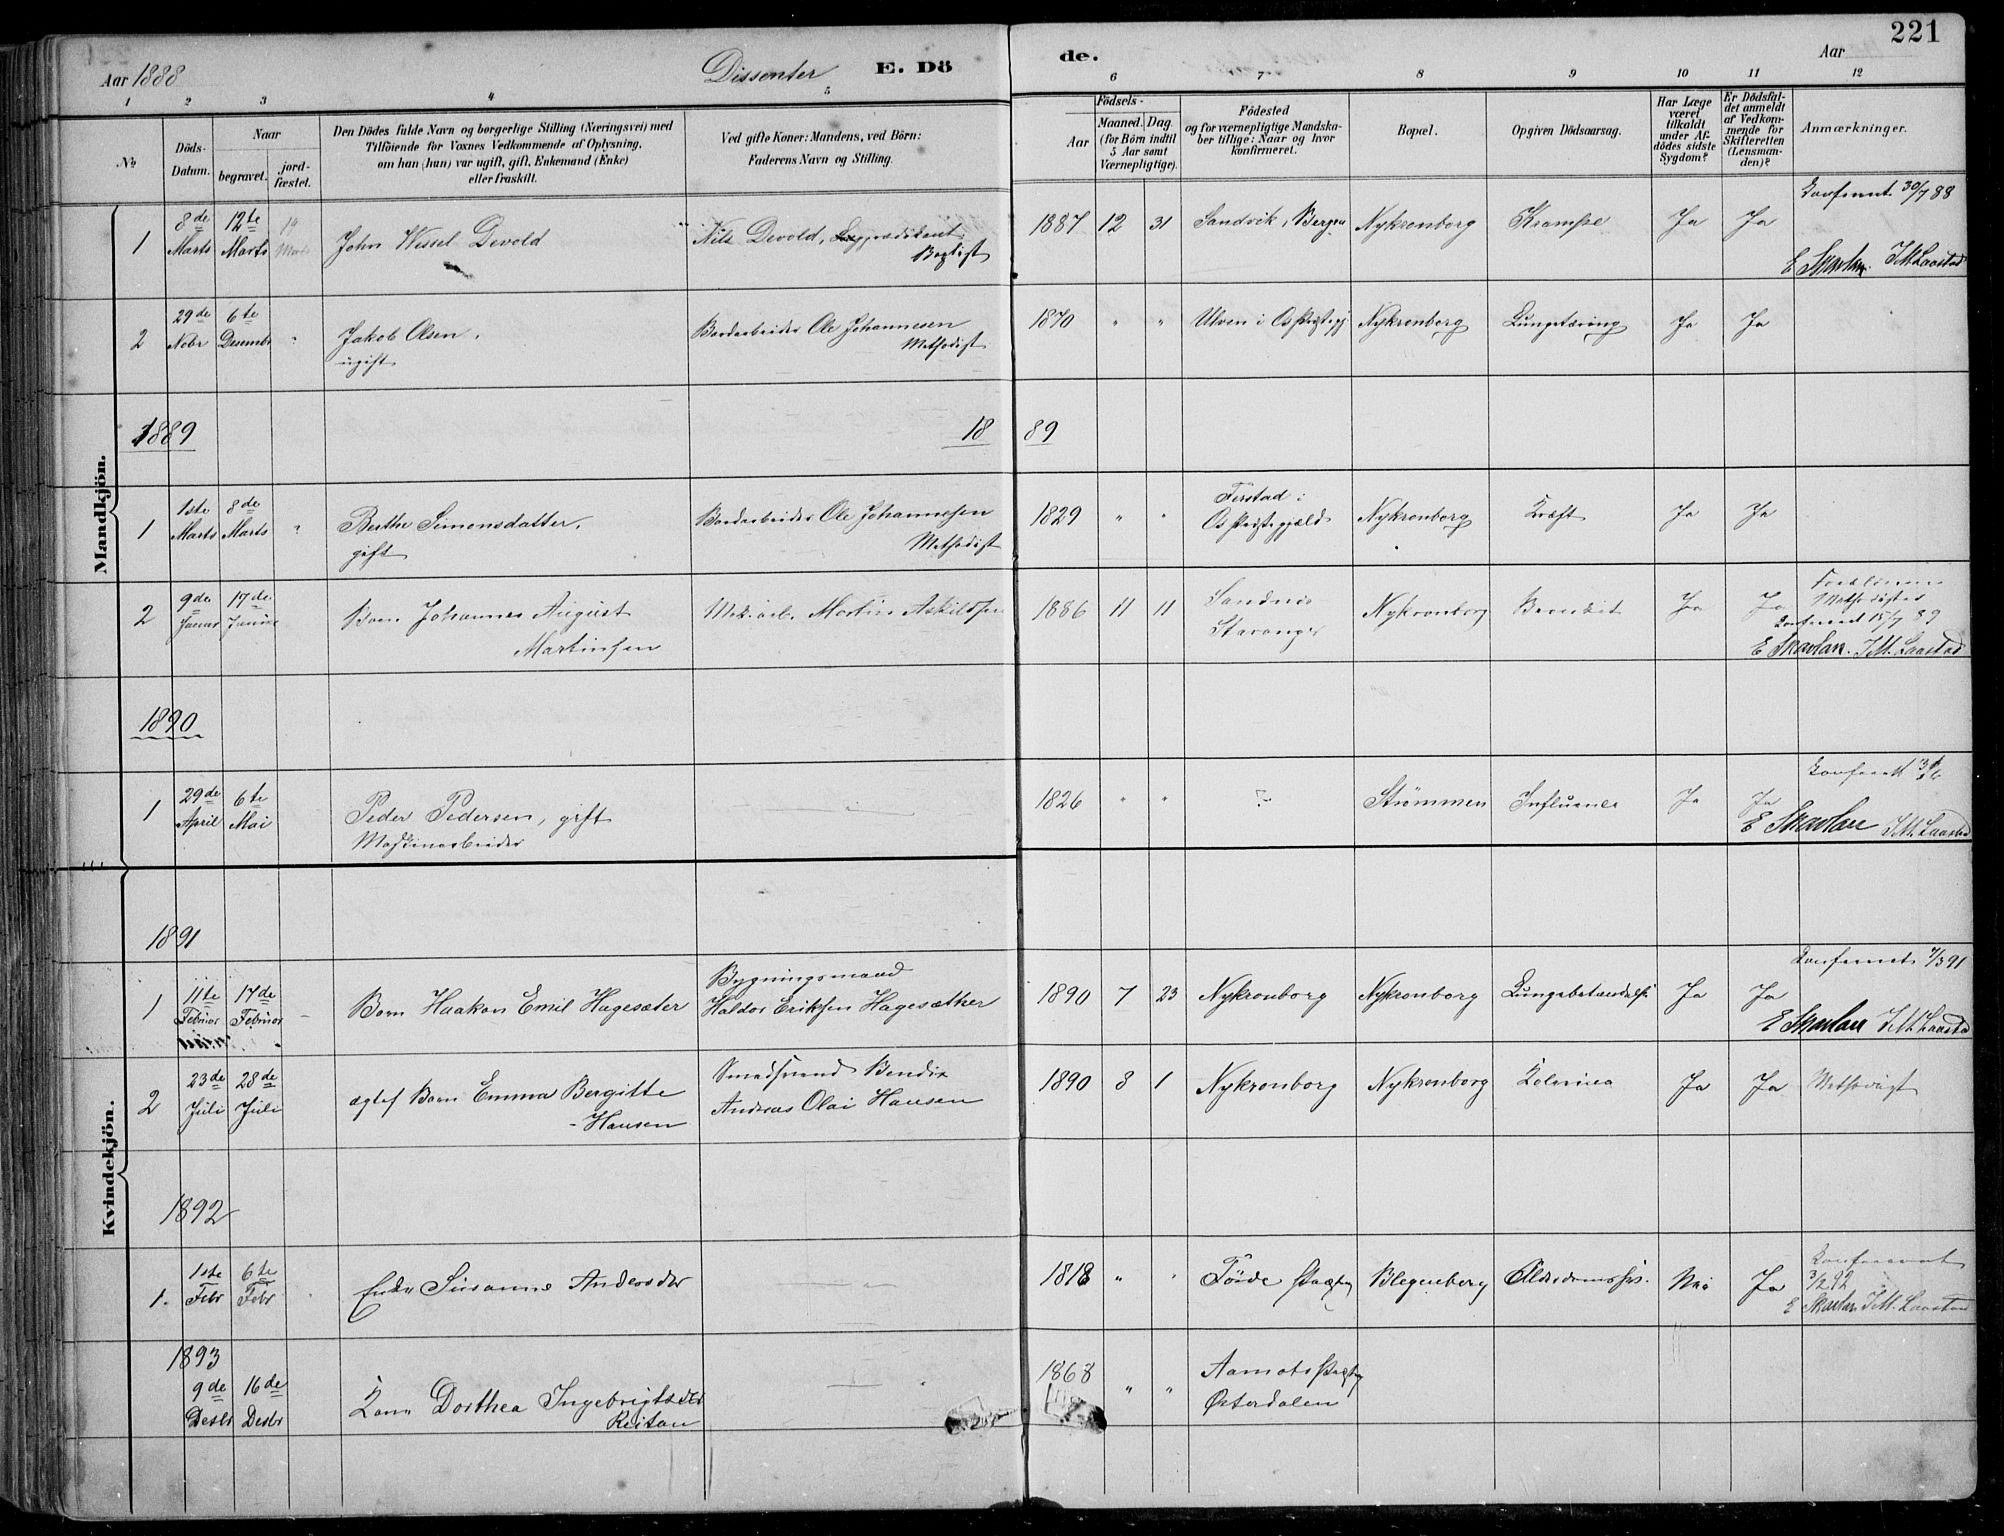 221
Aar 1888
Dissenter E. Dö
de.
Aar
1 2 3 4 5 6 7 8 9 10 11 12
No
Döds-
Datum.
Naar
begravet.
jord-
fæstet.
Den Dödes fulde Navn og borgerlige Stilling (Næringsvei) med
Tilföiende for Voxnes Vedkommende af Oplysning,
om han (hun) var ugift, gift, Enkemand (Enke)
eller fraskilt.
Ved gifte Koner: Mandens, ved Börn:
Faderens Navn og Stilling.
Födsels-
Aar
Maaned.
Dag.
(for Börn indtil
5 Aar samt
Værnepligtige).
Födested
og for værnepligtige Mandska-
ber tillige: Naar og hvor
konfirmeret.
Bopæl.
Opgiven Dödsaarsag.
Har Læge
været
tilkaldt
under Af-
dödes sidste
Sygdom?
Er Dödsfal-
det anmeldt
af Vedkom-
mende for
Skifteretten
(Lensman-
den)?
Anmærkninger.
Mandkjön.
Kvindekjön.
1
8de Marts
12te Marts
14 Marts
John Wessel Devold
Nils Devold, Lægprædikant
Baptist
1887 12 31
Sandvik, Bergen
Nykronborg
Krampe
Ja
Ja
Konfereret 30/7 88
E Skavlan. J M Laastad
2
29de Nobr
6te Desembr
"
Jakob Olsen,
ugift
Bordarbeider Ole Johannesen
Methodist
1870 " "
Ulven i Os Prstegj
Nykronborg
Lungetæring
Ja
Ja
1889
18 89
1
1ste Marts
8de Marts
"
Berthe Simonsdatter,
gift
Bordarbeider Ole Johannesen
Methodist
1829 " "
Ferstad i
Os Præstegjæld
Nykronborg
Kræft
Ja
Ja
2
9de Januar
17de Januar
Barn Johannes August
Martinsen
Mek. arb. Martin Askildsen
1886 11 11
Sandnes
Stavanger
Nykronborg
Bronkit
Ja
Ja
Forældrene
Methodister
Konfereret 15/7 89
E Skavlan. J M. Laastad
1890
1
29de April
6te Mai
Peder Pedersen, gift
Maskinarbeider
1826 " "
?
Strømmen
Influenza
Ja
Ja
E Skavlan J M. Laastad
1891
1
11te Februar
17de Februar
Barn Haakon Emil Hagesæter
Bygningsmand
Haldor Eriksen Hagesæther
1890 7 23
Nykronborg
Nykronborg
Lungebetændelse
Ja
Ja
Konfereret 7/3 91
E Skavlan J M. Laastad
2
23de Juli
28de Juli
ægtef Barn Emma Bergitte
- Hansen
Smedsvend Bendix
Andreas Olai Hansen
1890 8 1
Nykronborg
Nykronborg
Kolerina
Ja
Ja
Methodist
1892
1.
1ste Febr
6te Febr
Enke Susanne Andersdtr
1818 " "
Förde Præstg
Blegenberg
Alderdomssv.
Nei
Ja
Konfereret
3/2 92
E Skavlan J M. Laastad
1893
9de Desbr
16de Desbr
Kone Dorthea Ingebrigtsdtr
Reitan
1868 " "
Aamots Præstg
Østerdalen